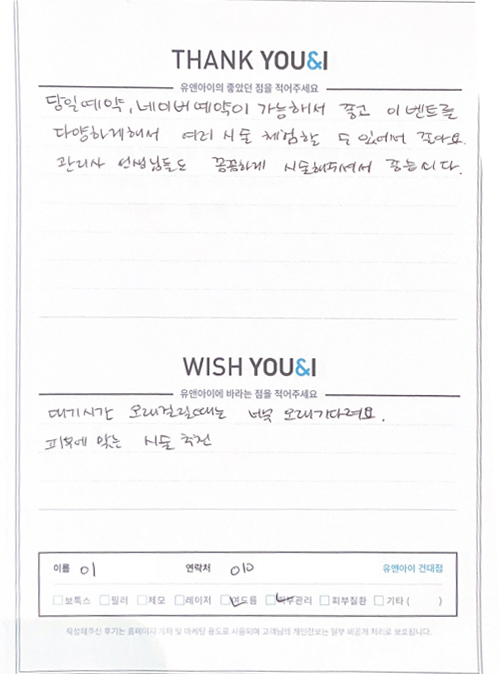 THANK YOU&I
유앤아이의 좋았던 점을 적어주세요
당일예약, 네이버예약이 가능해서 좋고 이벤트를
다양하게해서 여러 시술 체험할 수 있어서 좋아요.
관리사 선생님들도 꼼꼼하게 시술해주셔서 좋습니다.
WISH YOU&I
유앤아이에 바라는 점을 적어주세요
대기시간 오래걸릴때는 너무 오래기다려요.
피부에 맞는 시술 추천
이름 이 연락처 010 유앤아이 건대점
보톡스 필러 제모 레이저 여드름 피부관리 피부질환 기타 ( )
작성해주신 후기는 홈페이지 게재 및 마케팅 용도로 사용되며 고객님의 개인정보는 일부 비공개 처리로 보호됩니다.